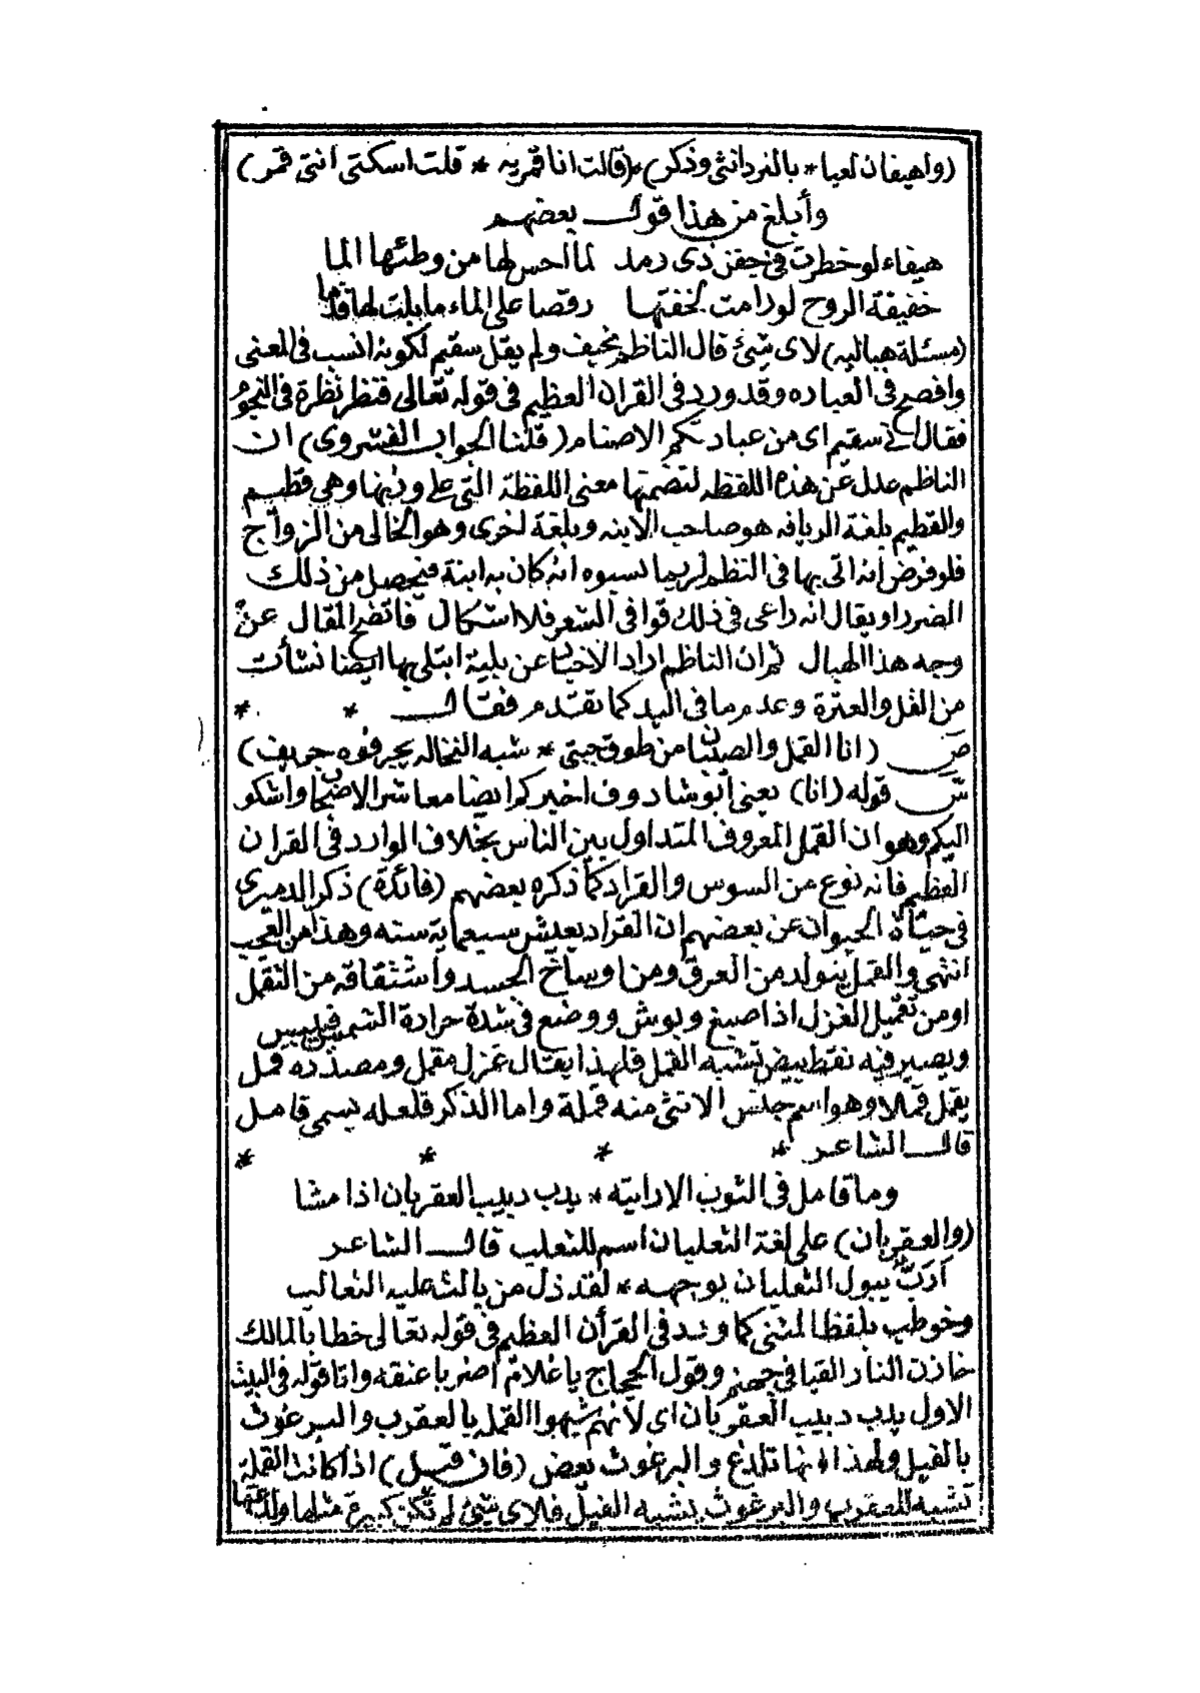 (واهيفان لعبا * بالنرد انثى وذكر) * (قالت انا قمريه * قلت اسكتى انتى قمر)
وأبلغ من هذا قول بعضهم
هيفاء لو خطرت فى جفن ذى رمد لما احس لها من وطئها الما
خفيفة الروح لو رامت لخفتها رقصا على الماء ما بلت لها قدما
(مسئلة هباليه) لاى شئ قال الناظم نحيف ولم يقل سقيم لكونه انسب فى المعنى
وافصح فى العباره وقد ورد فى القران العظيم فى قوله تعالى فنظر نظرة فى النجوم
فقال انى سقيم اى من عبادتكم الاصنام (قلنا الجواب الفشروى) ان
الناظم عدل عن هذه اللفظه لتضمنها معنى اللفظة التى على وزنها وهى قطيم
والقطيم بلغة الريافه هو صاحب الابنه وبلغة اخرى وهو الخالى من الزواج
فلو فرض انه اتى بها فى النظم لربما نسبوه انه كان به ابنة فيحصل من ذلك
الضرر او يقال انه راعى فى ذلك قوافى الشعر فلا اشكال فاتضح المقال عن
وجه هذا الهبال ثم ان الناظم اراد الاخبار عن بلية ابتلى بها ايضا نشأت
من القل والعترة وعدم ما فى اليد كما تقدم فقال * *
ص (انا القمل والصيبان من طوق جبتى * شبه النخاله يجرفوه جريف)
ش قوله (انا) يعنى أبو شادوف اخبركم ايضا معاشر الاصحاب واشكو
اليكم وهو ان القمل المعروف المتداول بين الناس بخلاف الوارد فى القران
العظيم فانه نوع من السوس والقراد كما ذكره بعضهم (فائدة) ذكر الدميرى
فى حياة الحيوان عن بعضهم ان القراد يعيش سبعماية سنه وهذا من العجب
انتهى والقمل يتولد من العرق ومن اوساخ الجسد واشتقاقه من التقمل
او من تقميل الغزل اذا صبغ وبوش ووضع فى شدة حرارة الشمس فييبس
ويصير فيه نقط بيض تشبه القمل فلهذا يقال غزل مقمل ومصدره قمل
يقمل قملا وهو اسم جنس الانثى منه قملة واما الذكر فلعله يسمى قامل
قال الشاعر * * * *
وما قامل فى الثوب الا رايته * يدب دبيب العقربان اذا مشا
(والعقربان) على لغة الثعلبان اسم للثعلب قال الشاعر
أربٌّ يبول الثعلبان بوجهه * لقد ذل من بالت عليه الثعالب
وخوطب بلفظ المثنى كما ورد فى القرأن العظيم فى قوله تعالى خطابا لمالك
خازن النار القيا فى جهنم وقول الحجاج يا غلام اضربا عنقه واما قوله فى البيت
الاول يدب دبيب العقربان اى لأنهم شبهوا القمل بالعقرب والبرغوث
بالفيل ولهذا انها تلدغ والبرغوث بعض (فان قيل) اذا كانت القملة
تشبه للعقرب والبرغوث يشبه الفيل فلاى شئ لم تكن كبيرة مثلها ولدغتها